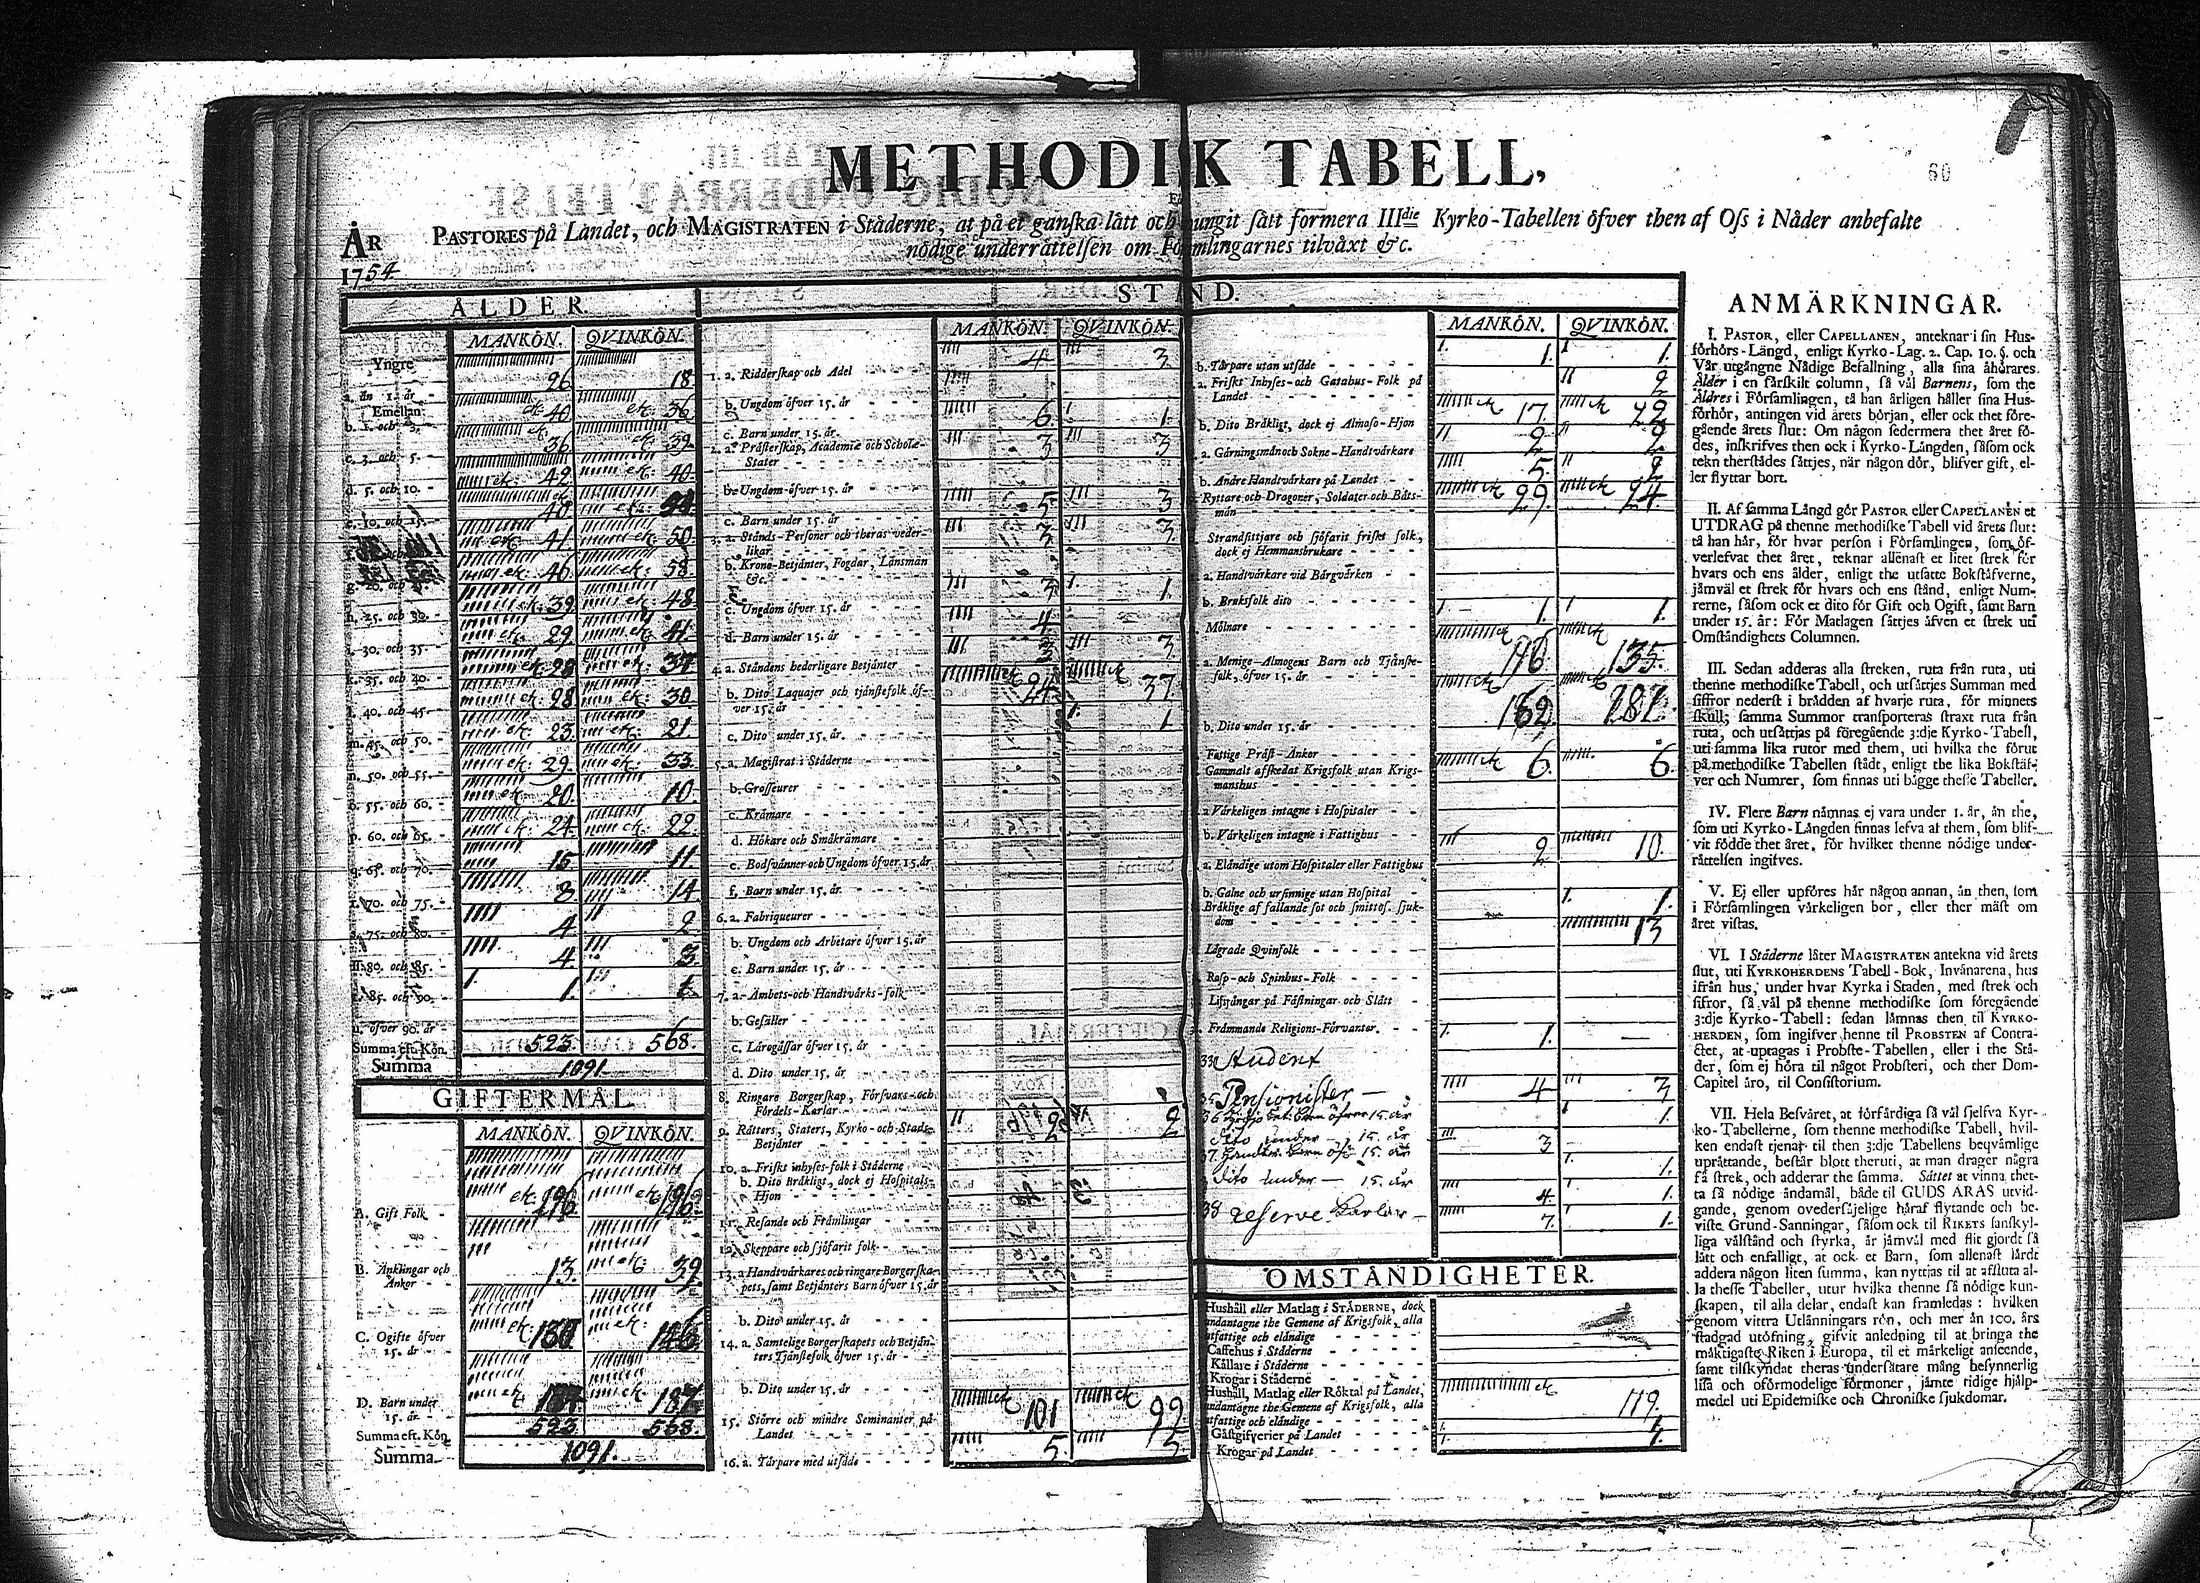 METHODIK TABELL,
60
PASTORES på Landet, och MAGISTRATEN i Ståderne, at på et ganska lått och tungit sått formera IIIdie Kyrko-Tabellen öfver then af Oss i Nåder anbefalte
nödige underråttelsen om Församlingarnes tilvåxt &c.
ÅR
1754
ÅLDER.
MANKÖN. QVINKÖN.
Yngre
a. ån 1. år 26 18
Emellan
b. 1. och 3. 40 36
c. 3. och 5. 36 39
d. 5. och 10. 42 40
e. 10. och 15. 40
41 50
46 58
h. 25. och 30. 39 48
i. 30. och 35. 29 41
k. 35. och 40. 28 37
l. 40. och 45. 28 30
m. 45. och 50. 23 21
n. 50. och 55. 29 33
o. 55. och 60. 20 10
p. 60. och 65. 24 22
q. 65. och 70. 15 11
r. 70. och 75. 8 14
s. 75. och 80. 4 2
80. och 85. 4 3
t. 85. och 90. 1
u. öfver 90. år
Summa eft. Kön. 523. 568.
Summa 1091
GIFTERMÅL.
MANKÖN. QVINKÖN.
A. Gift Folk 196 196
B. Ånklingar och Ånkor 13. 39
C. Ogifte öfver 15. år 146
D. Barn under 15. år 187
Summa eft. Kön 523 568.
Summa 1091.
STÅND.
MANKÖN. QVINKÖN.
1. a. Ridderskap och Adel 4 3
b. Ungdom öfver 15. år
c. Barn under 15. år 6. 1
2. a. Pråsterskap, Academiæ och Scholæ-Stater 3 3
b. Ungdom öfver 15. år
c. Barn under 15. år 5 3
3. a. Stånds-Personer och theras vederlikar 3 3
b. Krono-Betjånter, Fogdar, Lånsmån &c. 3 1
c. Ungdom öfver 15. år 4
d. Barn under 15. år 3 3
4. a. Ståndens hederligare Betjånter 24 37
b. Dito Laquajer och tjånstefolk öfver 15. år 1
c. Dito under 15. år.
5. a. Magistrat i Ståderne
b. Grosseurer
c. Kråmare
d. Hökare och Småkråmare
e. Bodsvånner och Ungdom öfver 15. år
f. Barn under 15. år.
6. a. Fabriqueurer
b. Ungdom och Arbetare öfver 15. år
c. Barn under 15. år
7. a. Åmbets- och Handtvårks-folk
b. Gesåller
c. Lårogåssar öfver 15. år
d. Dito under 15. år
8. Ringare Borgerskap, Försvars- och Fördels-Karlar
9. Råtters, Staters, Kyrko- och Stads-Betjånter 2 2
10. a. Friskt inhyses-folk i Ståderne
b. Dito Bråkligt, dock ej Hospitals-Hjon
11. Resande och Fråmlingar
12. Skeppare och sjöfarit folk
13. a. Handtvårkares och ringare Borgerskapets, samt Betjånters Barn öfver 15. år
b. Dito under 15. år
14. a. Samtelige Borgerskapets och Betjånters Tjånstefolk öfver 15. år
b. Dito under 15. år
15. Större och mindre Seminanter på Landet 101 99
16. a. Tårpare med utsåde 5. 5.
MANKÖN. QVINKÖN.
b. Tårpare utan utsåde 1. 1.
a. Friskt Inhyses- och Gatahus-Folk på Landet 2
b. Dito Bråkligt, dock ej Almoso-Hjon 17. 42
a. Gårningsmån och Sokne-Handtvårkare 2 2
b. Andre Handtvårkare på Landet 5. 2
Ryttare och Dragoner, Soldater och Båtsmån 29. 24.
Strandsittjare och sjöfarit friskt folk, dock ej Hemmansbrukare
a. Handtvårkare vid Bårgvårken
b. Bruksfolk dito
Mölnare 1. 1.
a. Menige-Almogens Barn och Tjånstefolk, öfver 15. år 116 135.
b. Dito under 15. år 162 181
Fattige Pråst-Ånkor
Gammalt afskedat Krigsfolk utan Krigsmanshus 6. 6.
a. Vårkeligen intagne i Hospitaler
b. Vårkeligen intagne i Fattighus
a. Elåndige utom Hospitaler eller Fattighus 2 10.
b. Galne och ursinnige utan Hospital
Bråklige af fallande sot och smittos. sjukdom 1.
Lågrade Qvinfolk 13
Rasp- och Spinhus-Folk
Lifstångar på Fåstningar och Slått
Fråmmande Religions-Förvanter.
Student 1. —
Pensionister 4 3
Dito under 15. år 3
Dito under 15. år 4. 1.
38 reserve Karlar 7. 1.
OMSTÅNDIGHETER.
Hushåll eller Matlag i STÅDERNE, dock
undantagne the Gemene af Krigsfolk, alla
utfattige och elåndige
Caffehus i Ståderne
Kållare i Ståderne
Krogar i Ståderne
Hushåll, Matlag eller Röktal på Landet,
undantagne the Gemene af Krigsfolk, alla
utfattige och elåndige 119.
Gåstgifverier på Landet 1.
Krogar på Landet
ANMÄRKNINGAR.
I. PASTOR, eller CAPELLANEN, anteknar i sin Hus-
förhörs-Långd, enligt Kyrko-Lag. 2. Cap. 10. §. och
Vår utgångne Nådige Befallning, alla sina åhörares
Ålder i en sårskilt column, så vål Barnens, som the
Åldres i Församlingen, tå han årligen håller sina Hus-
förhör, antingen vid årets början, eller ock thet före-
gående årets slut: Om någon sedermera thet året fö-
des, inskrifves then ock i Kyrko-Långden, såsom ock
tekn therstådes såttjes, når någon dör, blifver gift, el-
ler flyttar bort.
II. Af samma Långd gör PASTOR eller CAPELLANEN et
UTDRAG på thenne methodiske Tabell vid årets slut:
tå han hår, för hvar person i Församlingen, som öf-
verlefvat thet året, teknar allenast et litet strek för
hvars och ens ålder, enligt the utsatte Bokståfverne,
jåmvål et strek för hvars och ens stånd, enligt Num-
rerne, såsom ock et dito för Gift och Ogift, samt Barn
under 15. år: För Matlagen såttjes åfven et strek uti
Omståndighets Columnen.
III. Sedan adderas alla streken, ruta från ruta, uti
thenne methodiske Tabell, och utsåttjes Summan med
siffror nederst i brådden af hvarje ruta, för minnets
skull; samma Summor transporteras straxt ruta från
ruta, och utsåttjas på föregående 3:dje Kyrko-Tabell,
uti samma lika rutor med them, uti hvilka the förut
på methodiske Tabellen stådt, enligt the lika Bokståf-
ver och Numrer, som finnas uti bågge thesse Tabeller.
IV. Flere Barn nåmnas ej vara under 1. år, ån the,
som uti Kyrko-Långden finnas lefva af them, som blif-
vit födde thet året, för hvilket thenne nödige under-
råttelsen ingifves.
V. Ej eller upföres hår någon annan, ån then, som
i Församlingen vårkeligen bor, eller ther måst om
året vistas.
VI. I Ståderne låter MAGISTRATEN antekna vid årets
slut, uti KYRKOHERDENS Tabell-Bok, Invånarena, hus
ifrån hus, under hvar Kyrka i Staden, med strek och
sifror, så vål på thenne methodiske som föregående
3:dje Kyrko-Tabell: sedan låmnas then til KYRKO-
HERDEN, som ingifver henne til PROBSTEN af Contra-
ctet, at uptagas i Probste-Tabellen, eller i the Stå-
der, som ej höra til något Probsteri, och ther Dom-
Capitel åro, til Consistorium.
VII. Hela Besvåret, at förfårdiga så vål sjelfva Kyr-
ko-Tabellerne, som thenne methodiske Tabell, hvil-
ken endast tjenar til then 3:dje Tabellens beqvåmlige
upråttande, består blott theruti, at man drager några
få strek, och adderar the samma. Såttet at vinna thet-
ta så nödige åndamål, både til GUDS ÅRAS utvid-
gande, genom ovedersåjelige håraf flytande och be-
viste Grund-Sanningar, såsom ock til RIKETS sanskyl-
liga vålstånd och styrka, år jåmvål med flit gjordt så
lått och enfalligt, at ock et Barn, som allenast lårdt
addera någon liten summa, kan nyttjas til at afsluta al-
la thesse Tabeller, utur hvilka thenne så nödige kun-
skapen, til alla delar, endast kan framledas: hvilken
genom vittra Utlånningars rön, och mer ån 100. års
stadgad utöfning, gifvit anledning til at bringa the
måktigaste Riken i Europa, til et mårkeligt anseende,
samt tilskyndat theras undersåtare mång besynnerlig
lisa och oförmodelige förmoner, jåmte tidige hjålp-
medel uti Epidemiske och Chroniske sjukdomar.